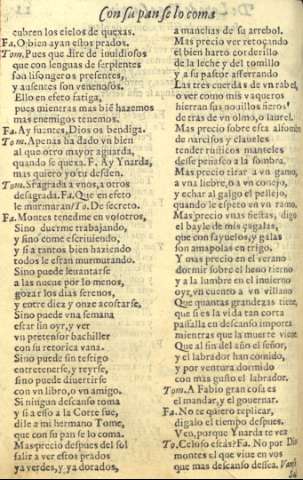 Con su pan se lo coma
cubren los cielos de quexas.
Fa. O bien ayan estos prados.
Tom. Pues que dire de inuidiosos
que con lenguas de serpientes
son lisongeros presentes,
y ausentes son venenosos.
Ello en efeto fatiga,
pues mientras mas bie hazemos
mas enemigos tenemos.
Fa. Ay fuentes, Dios os bendiga.
Tom. Apenas ha dado vn bien
al que otro mayor aguarda,
quando se quexa. F. Ay Ynarda,
mas quiero yo tu desden.
Tom. Si agrada a vnos, a otros
desagrada. Fa. Que en efeto
le murmuran? To. De secreto.
Fa. Montes tenedme en vosotros,
Sino duerme trabajando,
y sino come escriuiendo,
y si a tantos bien haziendo
todos le estan murmurando.
Sino puede leuantarse
a las nueue por lo menos,
gozar los dias serenos,
y entre diez y onze acostarse,
Sino puede vna semana
estar sin oyr, y ver
vn pretensor bachiller
con su retorica vana.
Sino puede sin testigo
entretenerse, y reyrse,
sino puede diuertirse
con vn libro, o vn amigo.
Si ningun descanso toma
y si a esso a la Corte fue,
dile a mi hermano Tome,
que con su pan se lo coma.
Mas precio despues del sol
salir a ver estos prados
ya verdes, y ya dorados,
a manchas de su arrebol.
Mas precio ver retoçando
el bien harto corderillo
de la leche y del tomillo
y a su pastor asserrando
Las tres cuerdas de vn rabel,
o ver como mis vaqueros
hierran sus nouillos fieros
detras de vn olmo, o laurel.
Mas precio sobre esta alfombra
de narcisos y claueles
tender rusticos manteles
desse peñasco a la sombra.
Mas precio tirar a vn ganso,
a vna liebre, o a vn conejo,
y echar al galgo el pellejo,
quando le espeto en vn ramo.
Mas precio vnas fiestas, digo
el bayle de mis çagalas,
que con sayuelos, y galas
son amapolas en trigo.
Y mas precio en el verano
dormir sobre el heno tierno
y a la lumbre en el inuierno
oyr vn cuento a vn villano
Que quantas grandezas tiene,
que si es la vida tan corta
passalla en descanso importa
mientras que la muerte viene.
Que al fin del año el señor,
y el labrador han comido,
y por ventura dormido
con mas gusto el labrador.
Tom. A Fabio gran cosa es
el mandar, y el gouernar.
Fa. No te quiero replicar,
digalo el tiempo despues.
Ven, porque Ynarda te vez
To. Celoso estàs? Fa. No por Dios
montes el que viue en vos
que mas descanso dessea.